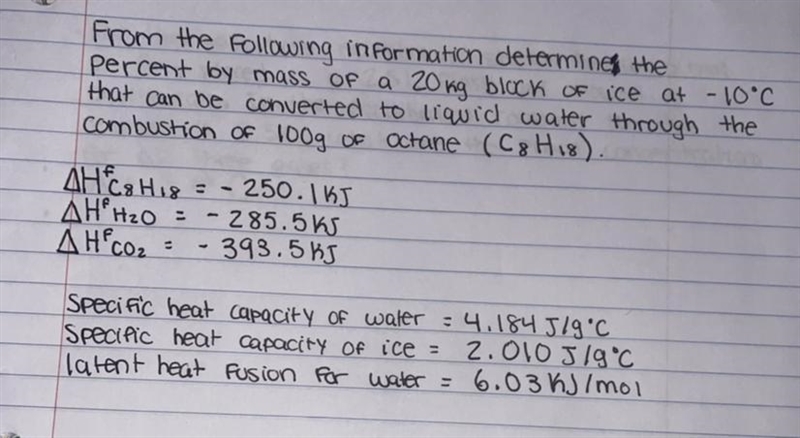 From the Following information determine the
percent by mass of a 20kg block of ice at -10°C
that can be converted to liquid water through the
combustion of 100g of octane (C8H18).
ΔHᶠC8H18 = - 250.1KJ
ΔHᶠH2O = - 285.5KJ
ΔHᶠCO2 = - 393.5KJ
Specific heat capacity of water = 4.184J/g°C
Specific heat capacity of ice = 2.010J/g°C
latent heat Fusion For water = 6.03KJ/mol